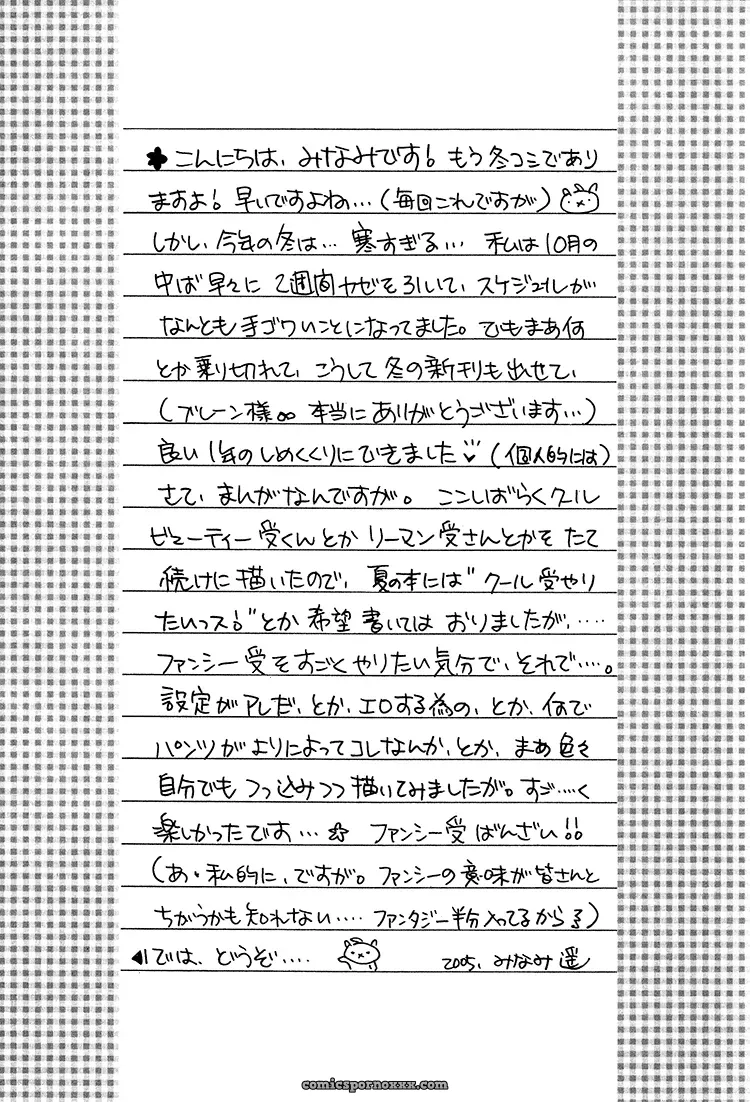 こんにちは、みなみです! もう冬コミであり
ますよ! 早いですよね…(毎回これですが)
しかし、今年の冬は… 寒すぎる… 私は10月の
中ば早々に 2週間カゼを引いて、スケジュールが
なんとも手ゴワいことになってました。でもまあ何
とか乗り切れて、こうして冬の新刊も出せて、
(ブレーン様∞ 本当にありがとうございます…)
良い1年のしめくくりにできました♡(個人的には)
さて、まんがなんですが。 ここしばらくクール
ビューティー受くんとか リーマン受さんとかを たて
続けに描いたので、夏の本には"クール受やり
たいっス!"とか希望書いてはおりましたが、‥‥
ファンシー受をすごくやりたい気分で、それで‥‥。
設定がアレだ、とか、エロする為の、とか、何で
パンツがよりによってコレなんか、とか、まあ色々
自分でもつっ込みつつ描いてみましたが。すご‥‥く
楽しかったです…☆ ファンシー受ばんざい!!
(あ・私的に、ですが。ファンシーの意味が皆さんと
ちがうかも知れない‥‥ ファンタジー半分入ってるからる)
◀では、どうぞ‥‥ 2005、みなみ遥
comicspornoxxx.com